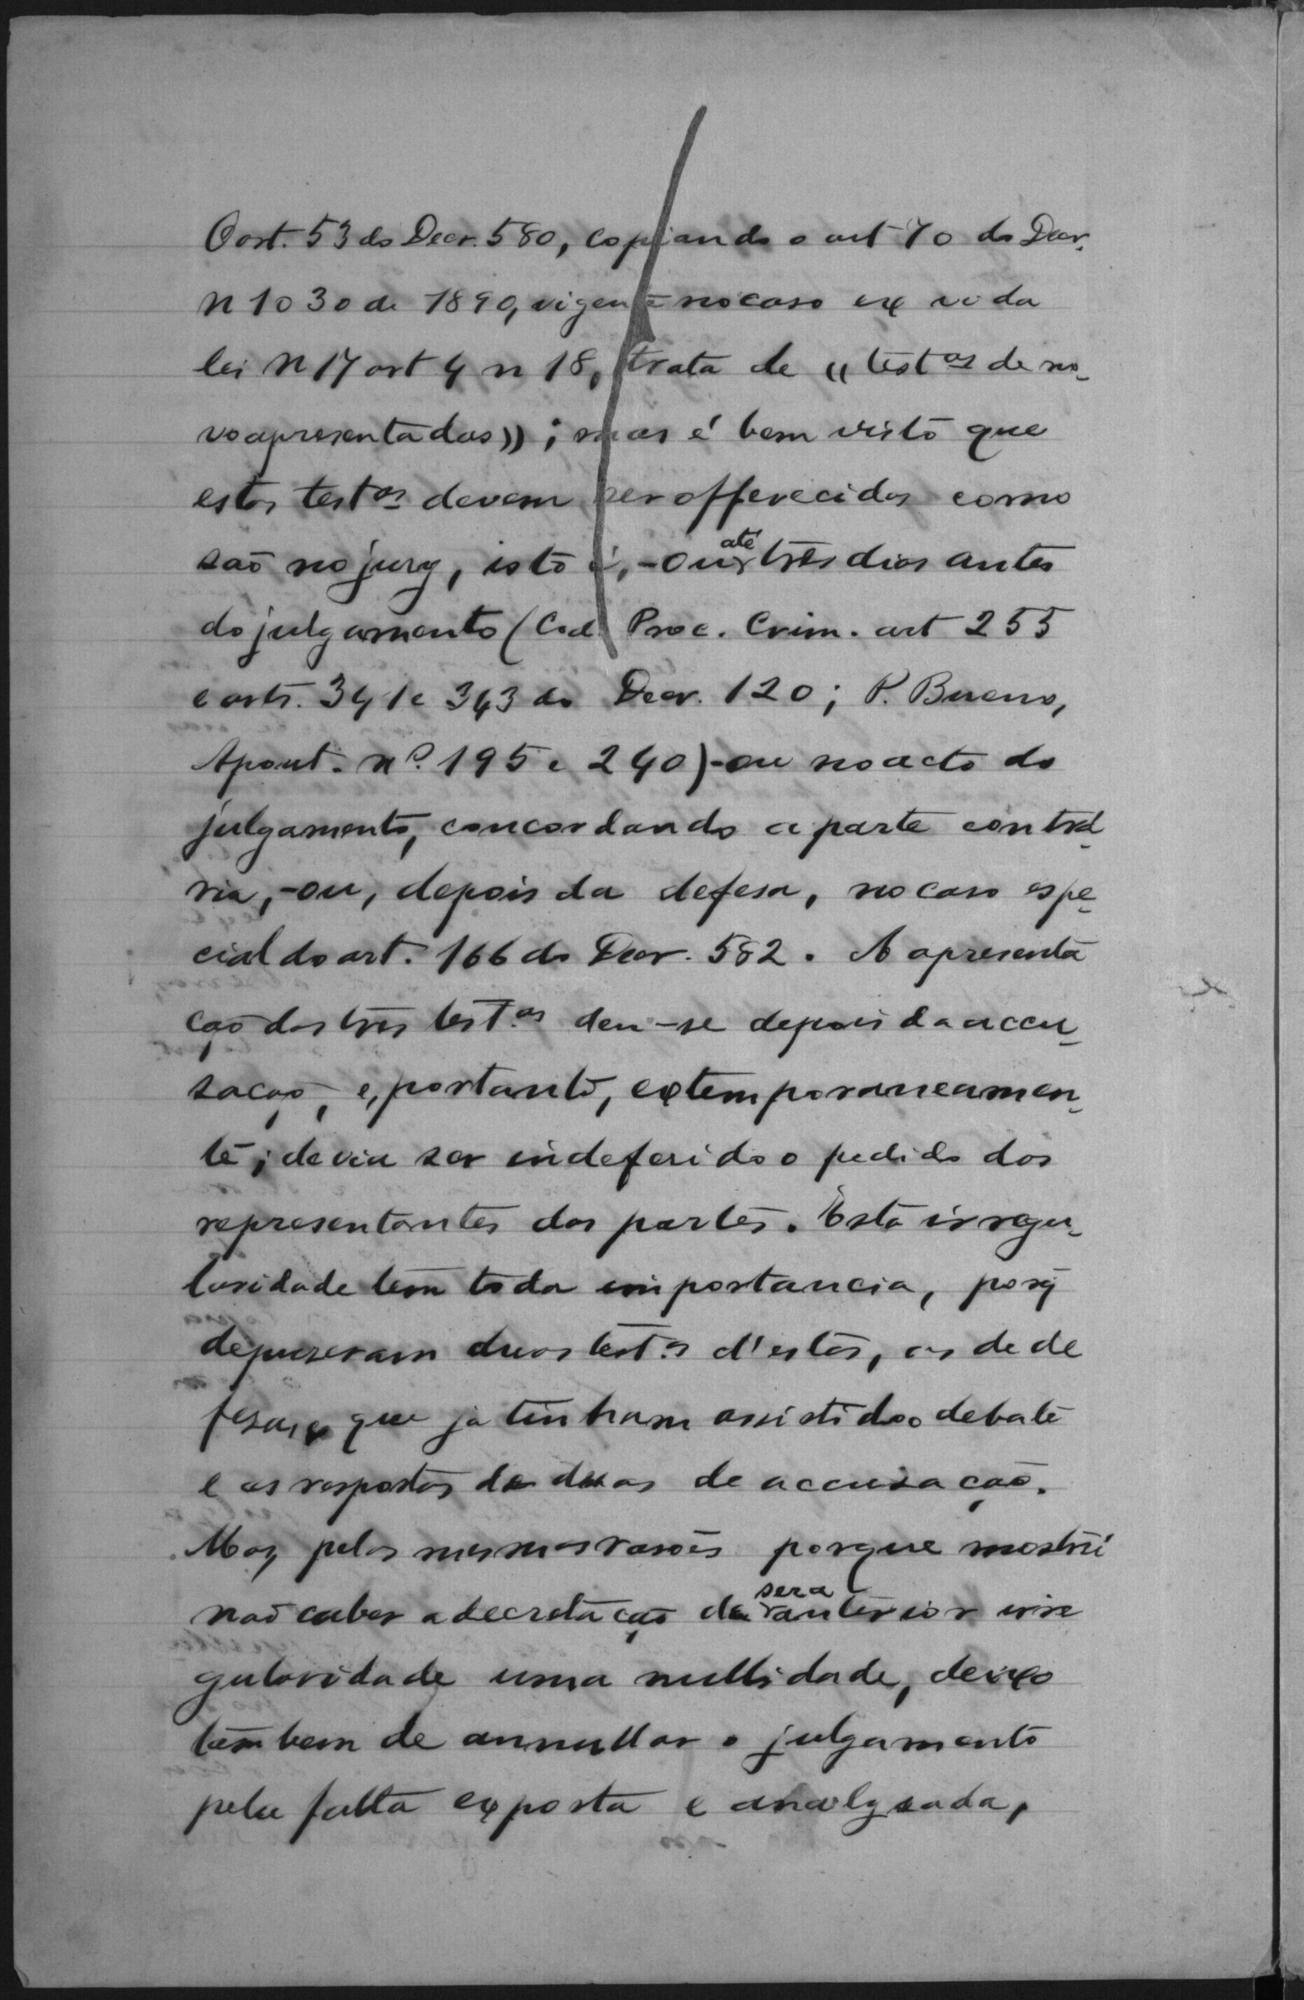 O art. 53 do Decr. 580, copiando o art 70 do Decr.
n 1030 de 1890, vigente no caso ex vi da
lei n 17 art 4 n 18, trata de «test.as de no-
vo apresentadas»; mas é bem visto que
estas test.as devem ser offerecidas como
são no jury, isto é, -ou até tres dias antes
do julgamento (Cod. Proc. Crim. art 255
e arts. 341 e 343 do Decr. 120; P. Bueno,
Apont. nº. 195 e 240)-ou no acto do
julgamento, concordando a parte contrá-
ria, -ou, depois da defesa, no caso espe-
cial do art. 166 do Decr. 582. A apresenta
ção das tres test.as deu-se depois da accu-
sação, e, portanto, extemporaneamen-
te; devia ser indeferido o pedido dos
representantes das partes. Esta irregu-
laridade tem toda importancia, porq
depuzeram duas test.as d'estas, as de de
fesa, que já tinham assistido o debate
e as respostas de duas de accusação.
Mas, pelas mesmas rasões porque mostrei
não caber a decretação da sera anterior irre
gularidade uma nullidade, deixo
tambem de annullar o julgamento
pela falta exposta e analysada,